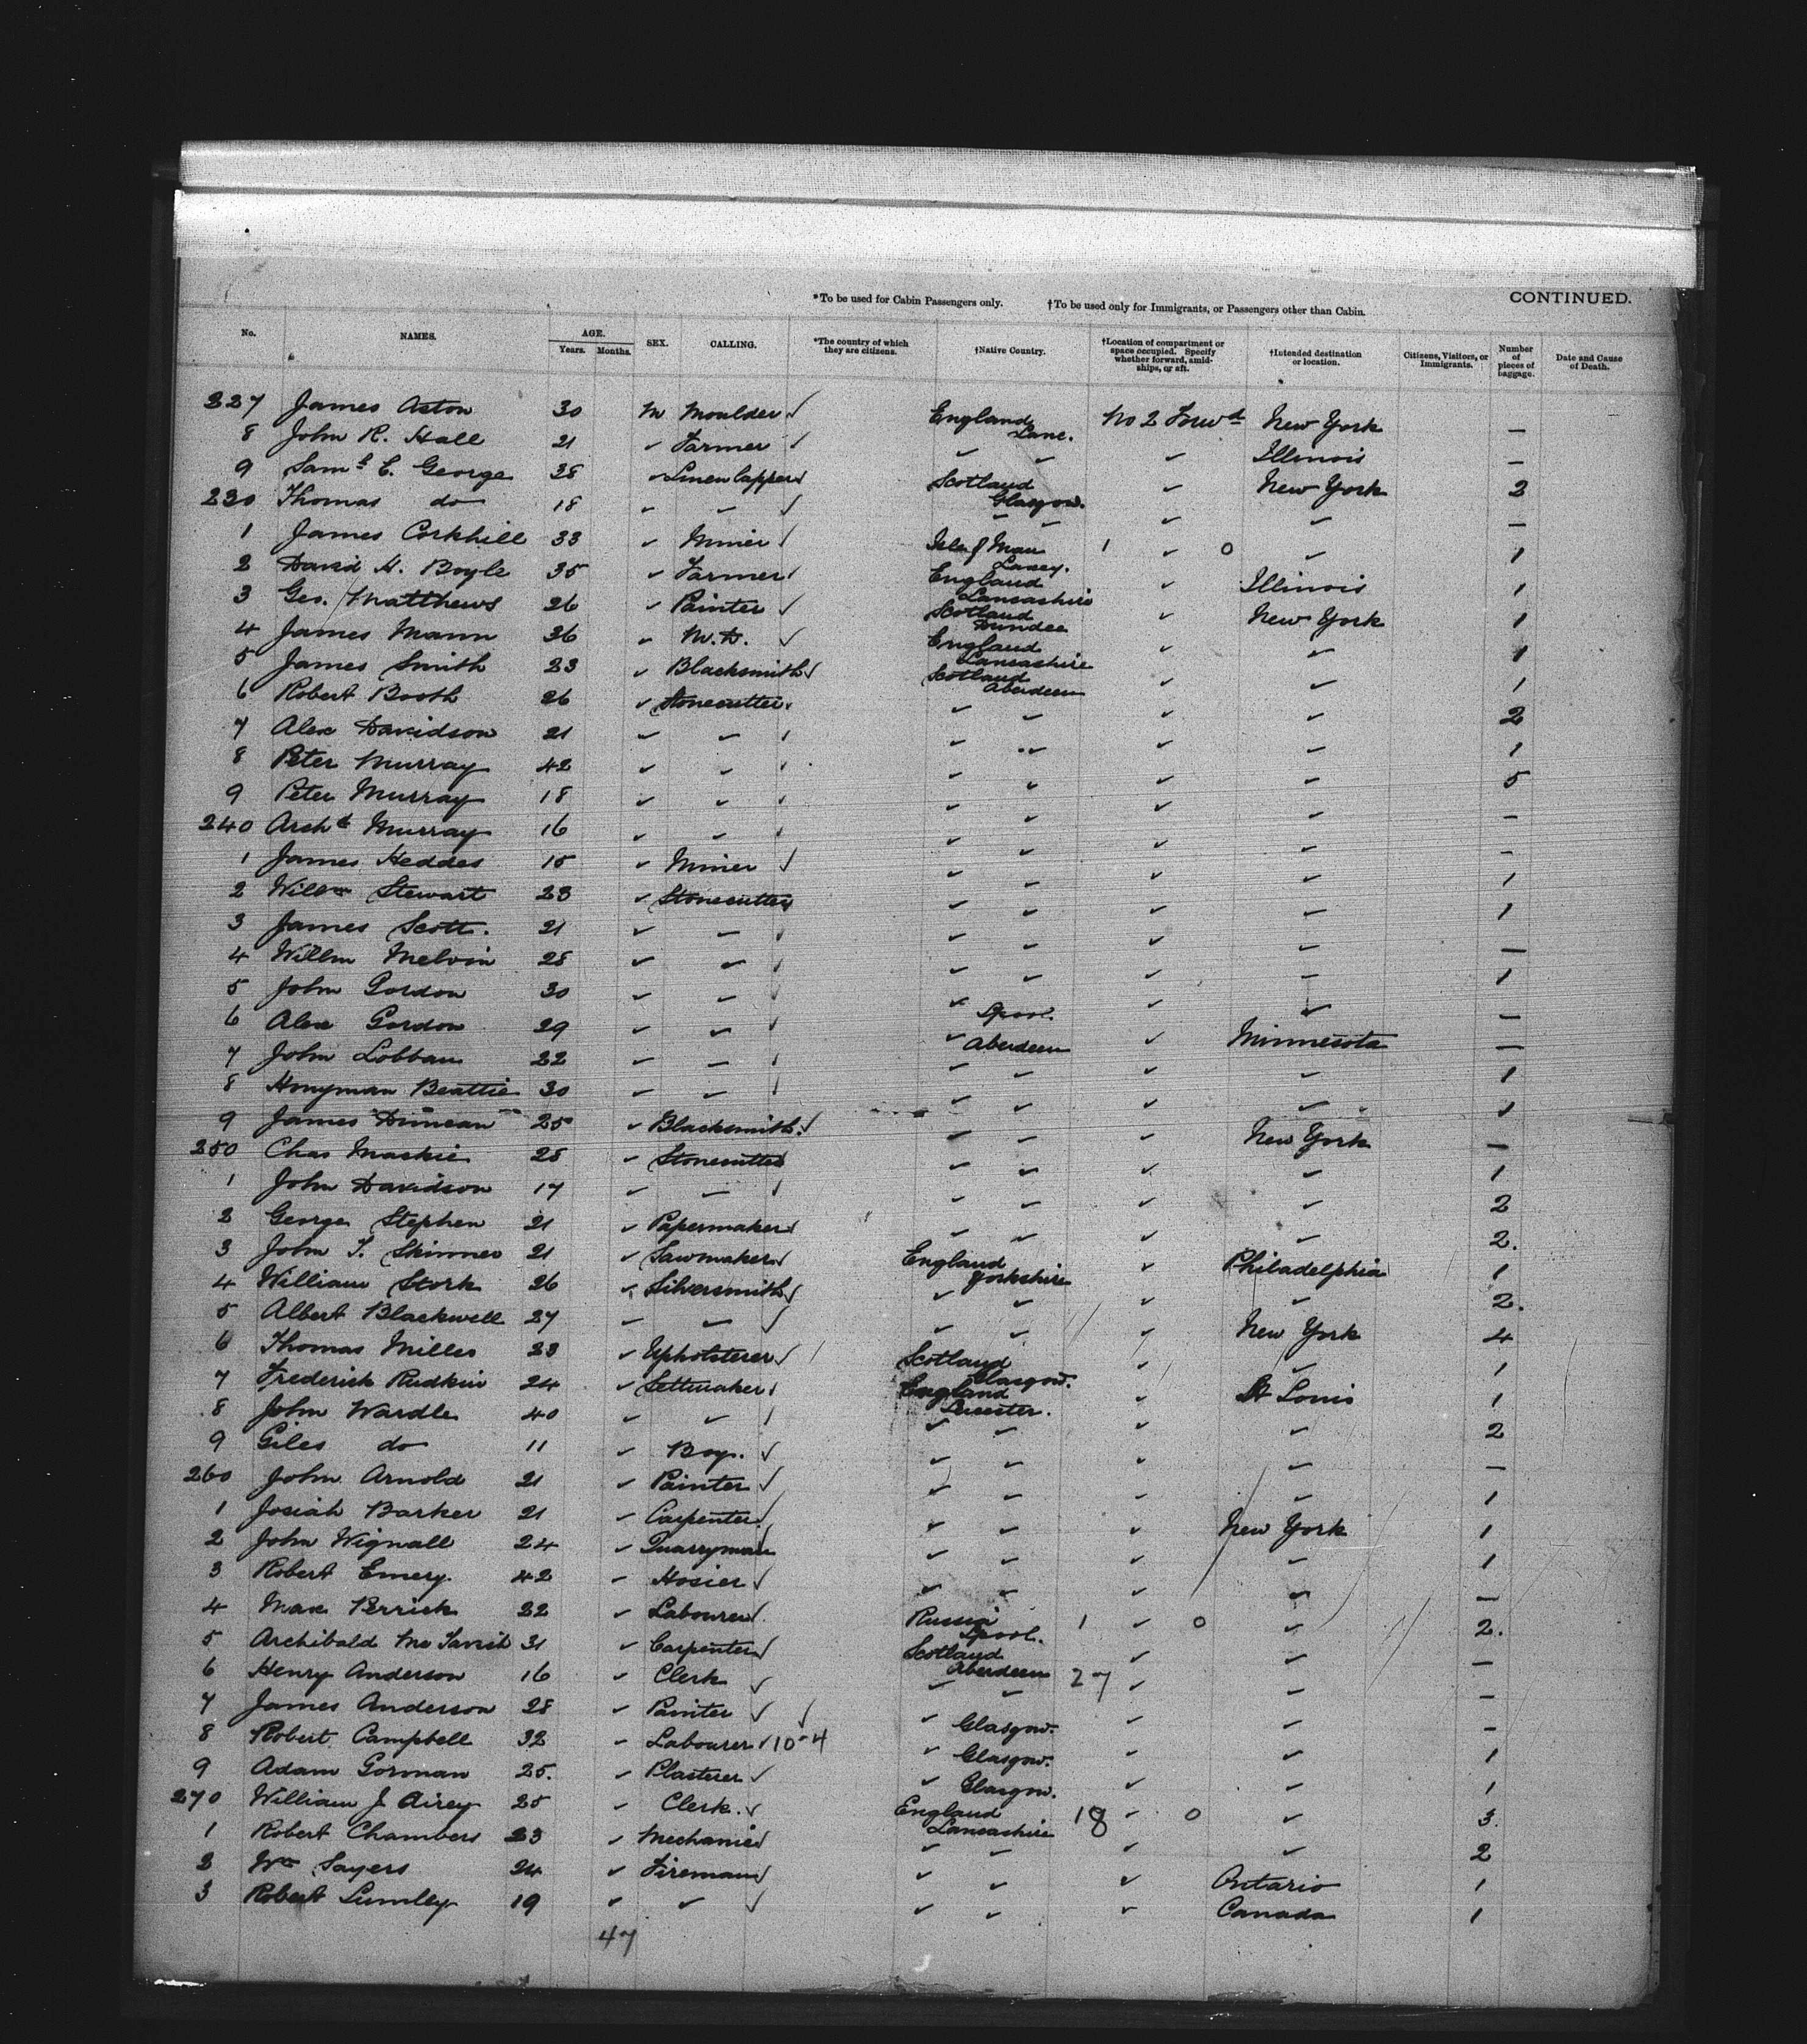 *To be used for Cabin Passengers only. †To be used only for Immigrants, or Passengers other than Cabin. CONTINUED.
No. NAMES. AGE. Years. Months. SEX. CALLING. *The country of which they are citizens. †Native Country. †Location of compartment or space occupied. Specify whether forward, amidships, or aft. †Intended destination or location. Citizens, Visitors, or Immigrants. Number of pieces of baggage. Date and Cause of Death.
227 James Aston 30 M Moulder ✓ England Lanc. No 2 Forwd New York —
8 John R. Hall 21 ✓ Farmer ✓ ✓ ✓ ✓ Illinois —
9 Saml E. George 38 ✓ Linenlapper ✓ Scotland Glasgow. ✓ New York 2
230 Thomas do 18 ✓ ✓ ✓ ✓ ✓ ✓ ✓ —
1 James Corkhill 33 ✓ Miner ✓ Isle of Man Laxey. 1 ✓ 0 ✓ 1
2 David H. Boyle 35 ✓ Farmer ✓ England Lancashire ✓ Illinois 1
3 Geo. Matthews 26 ✓ Painter ✓ Scotland Dundee ✓ New York 1
4 James Mann 36 ✓ M.D. ✓ England Lancashire ✓ ✓ 1
5 James Smith 23 ✓ Blacksmith ✓ Scotland Aberdeen ✓ ✓ 1
6 Robert Booth 26 ✓ Stonecutter ✓ ✓ ✓ ✓ ✓ 2
7 Alex Davidson 21 ✓ ✓ ✓ ✓ ✓ ✓ ✓ 1
8 Peter Murray 42 ✓ ✓ ✓ ✓ ✓ ✓ ✓ 5
9 Peter Murray 18 ✓ ✓ ✓ ✓ ✓ ✓ ✓ —
240 Archd Murray 16 ✓ ✓ ✓ ✓ ✓ ✓ ✓ —
1 James Heddes 15 ✓ Miner ✓ ✓ ✓ ✓ ✓ 1
2 Willm Stewart 23 ✓ Stonecutter ✓ ✓ ✓ ✓ ✓ 1
3 James Scott. 21 ✓ ✓ ✓ ✓ ✓ ✓ ✓ —
4 Willm Melvin 28 ✓ ✓ ✓ ✓ ✓ ✓ ✓ 1
5 John Gordon 30 ✓ ✓ ✓ ✓ Lpool. ✓ ✓ —
6 Alex Gordon 29 ✓ ✓ ✓ ✓ Aberdeen ✓ Minnesota —
7 John Lobban 22 ✓ ✓ ✓ ✓ ✓ ✓ ✓ 1
8 Honyman Beattie 30 ✓ ✓ ✓ ✓ ✓ ✓ ✓ 1
9 James Duncan 25 ✓ Blacksmith. ✓ ✓ ✓ ✓ New York —
250 Chas Mackie 28 ✓ Stonecutter ✓ ✓ ✓ ✓ 1
1 John Davidson 17 ✓ ✓ ✓ ✓ ✓ ✓ ✓ 2
2 George Stephen 21 ✓ Papermaker ✓ ✓ ✓ ✓ ✓ 2.
3 John T. Skinner 21 ✓ Sawmaker ✓ England Yorkshire ✓ Philadelphia 1
4 William Stork 26 ✓ Silversmith ✓ ✓ ✓ ✓ ✓ 2.
5 Albert Blackwell 27 ✓ ✓ ✓ ✓ ✓ ✓ New York 4
6 Thomas Miller 23 ✓ Upholsterer ✓ Scotland Glasgow. ✓ ✓ 1
7 Frederick Rudkin 24 ✓ Settmaker ✓ England Leicester. ✓ St Louis 1
8 John Wardle 40 ✓ ✓ ✓ ✓ ✓ ✓ ✓ 2
9 Giles do 11 ✓ Boy. ✓ ✓ ✓ ✓ ✓ —
260 John Arnold 21 ✓ Painter ✓ ✓ ✓ ✓ ✓ 1
1 Josiah Barker 21 ✓ Carpenter ✓ ✓ ✓ ✓ New York 1
2 John Wignall 24 ✓ Quarryman ✓ ✓ ✓ ✓ 1
3 Robert Emery. 42 ✓ Hosier ✓ ✓ ✓ ✓ ✓ —
4 Max Perrick 22 ✓ Labourer ✓ Russia Lpool. 1 ✓ 0 ✓ 2.
5 Archibald McTavish 31 ✓ Carpenter ✓ Scotland Aberdeen ✓ ✓ —
6 Henry Anderson 16 ✓ Clerk ✓ ✓ ✓ 27 ✓ ✓ —
7 James Anderson 28 ✓ Painter ✓ ✓ ✓ Glasgow. ✓ ✓ —
8 Robert Campbell 32 ✓ Labourer ✓ 10-4 ✓ Glasgow. ✓ ✓ 1
9 Adam Gorman 25. ✓ Plasterer ✓ ✓ Glasgow. ✓ ✓ 1
270 William J. Airey 25 ✓ Clerk. ✓ England Lancashire 18 ✓ 0 ✓ 3.
1 Robert Chambers 23 ✓ Mechanic ✓ ✓ ✓ ✓ ✓ 2
2 Wm Sayers 24 ✓ Fireman ✓ ✓ ✓ ✓ Ontario 1
3 Robert Lumley 19 ✓ ✓ ✓ ✓ ✓ ✓ Canada 1
47